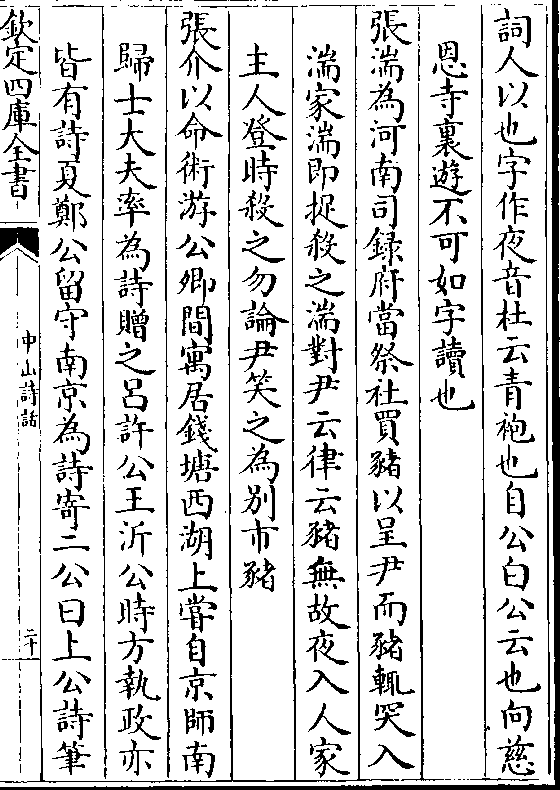 詞人以也字作夜音杜云青袍也自公白公云也向慈
恩寺裏遊不可如字讀也
張湍為河南司録府當祭社買豬以呈尹而豬輒突入
湍家湍即捉殺之湍對尹云律云豬無故夜入人家
主人登時殺之勿論尹笑之為別市豬
張介以命術游公卿間寓居錢塘西湖上嘗自京師南
歸士大夫率為詩贈之呂許公王沂公時方執政亦
皆有詩夏鄭公留守南京為詩寄二公曰上公詩筆
欽定四庫全書
中山詩話
二十